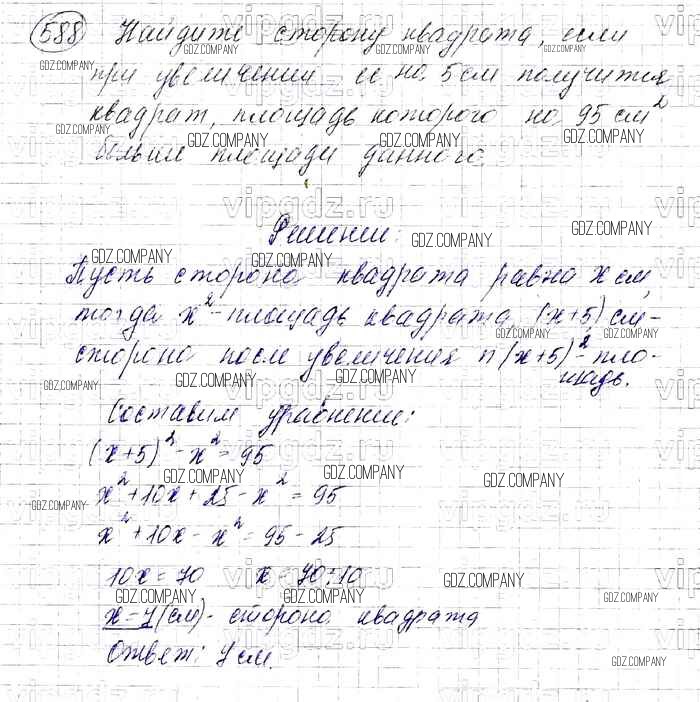 588 Найдите сторону квадрата, если
при увеличении ее на 5 см получится
квадрат, площадь которого на 95 см²
больше площади данного.
Решение:
Пусть сторона квадрата равна x см,
тогда x² - площадь квадрата, (x+5) см -
сторона после увеличения и (x+5)² - пло-
щадь.
Составим уравнение:
(x+5)² - x² = 95
x² + 10x + 25 - x² = 95
x² + 10x - x² = 95 - 25
10x = 70 x = 70 : 10
x = 7 (см) - сторона квадрата
Ответ: 7 см.
GDZ.COMPANY
vipgdz.ru